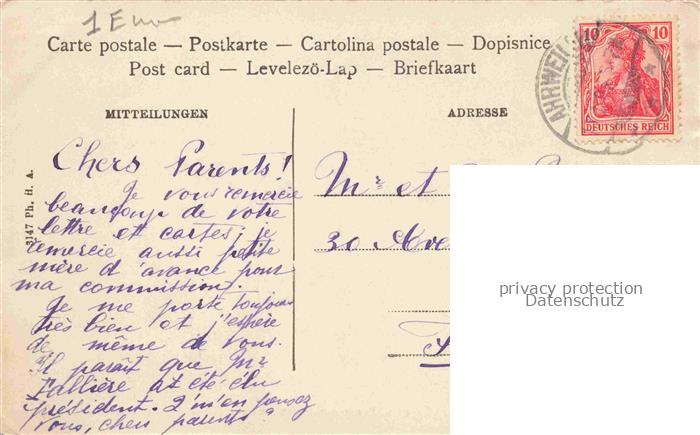 1 E
Carte postale — Postkarte — Cartolina postale — Dopisnice
Post card — Levelező-Lap — Briefkaart
AHRWEILER
10 10
DEUTSCHES REICH
MITTEILUNGEN
ADRESSE
3147 Ph. H. A.
Chers Parents!
Je vous remercie
beaucoup de votre
lettre et cartes; je
remercie aussi petite
mère d'avance pour
ma commission.
Je me porte toujours
très bien et j'espère
de même de vous.
Il paraît que Mr
Fallière ait été élu
président. Q'n'en pensez
vous, chers parents?
Mr et
30 Ave
privacy protection
Datenschutz